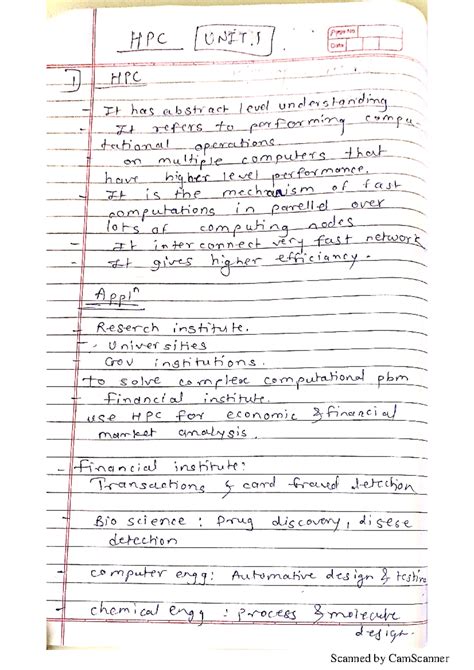 HPC UNIT.1
Page No.
Date
1) HPC
- It has abstract level understanding
- It refers to performing compu
tational operations
on multiple computers that
have higher level performance.
- It is the mechanism of fast
computations in parellel over
lots of computing nodes
- It interconnect very fast network
- It gives higher efficiancy.
Applⁿ
- Reserch institute.
- Universities
Gov institutions.
to solve complex computational pbm
- financial institute.
use HPC for economic & financial
market analysis.
- financial institute:
Transactions & card fraud detection
Bio science : Drug discovery, disese
detection
- computer engg: Automative design & testing
- chemical engg : process & molecule
design.
Scanned by CamScanner